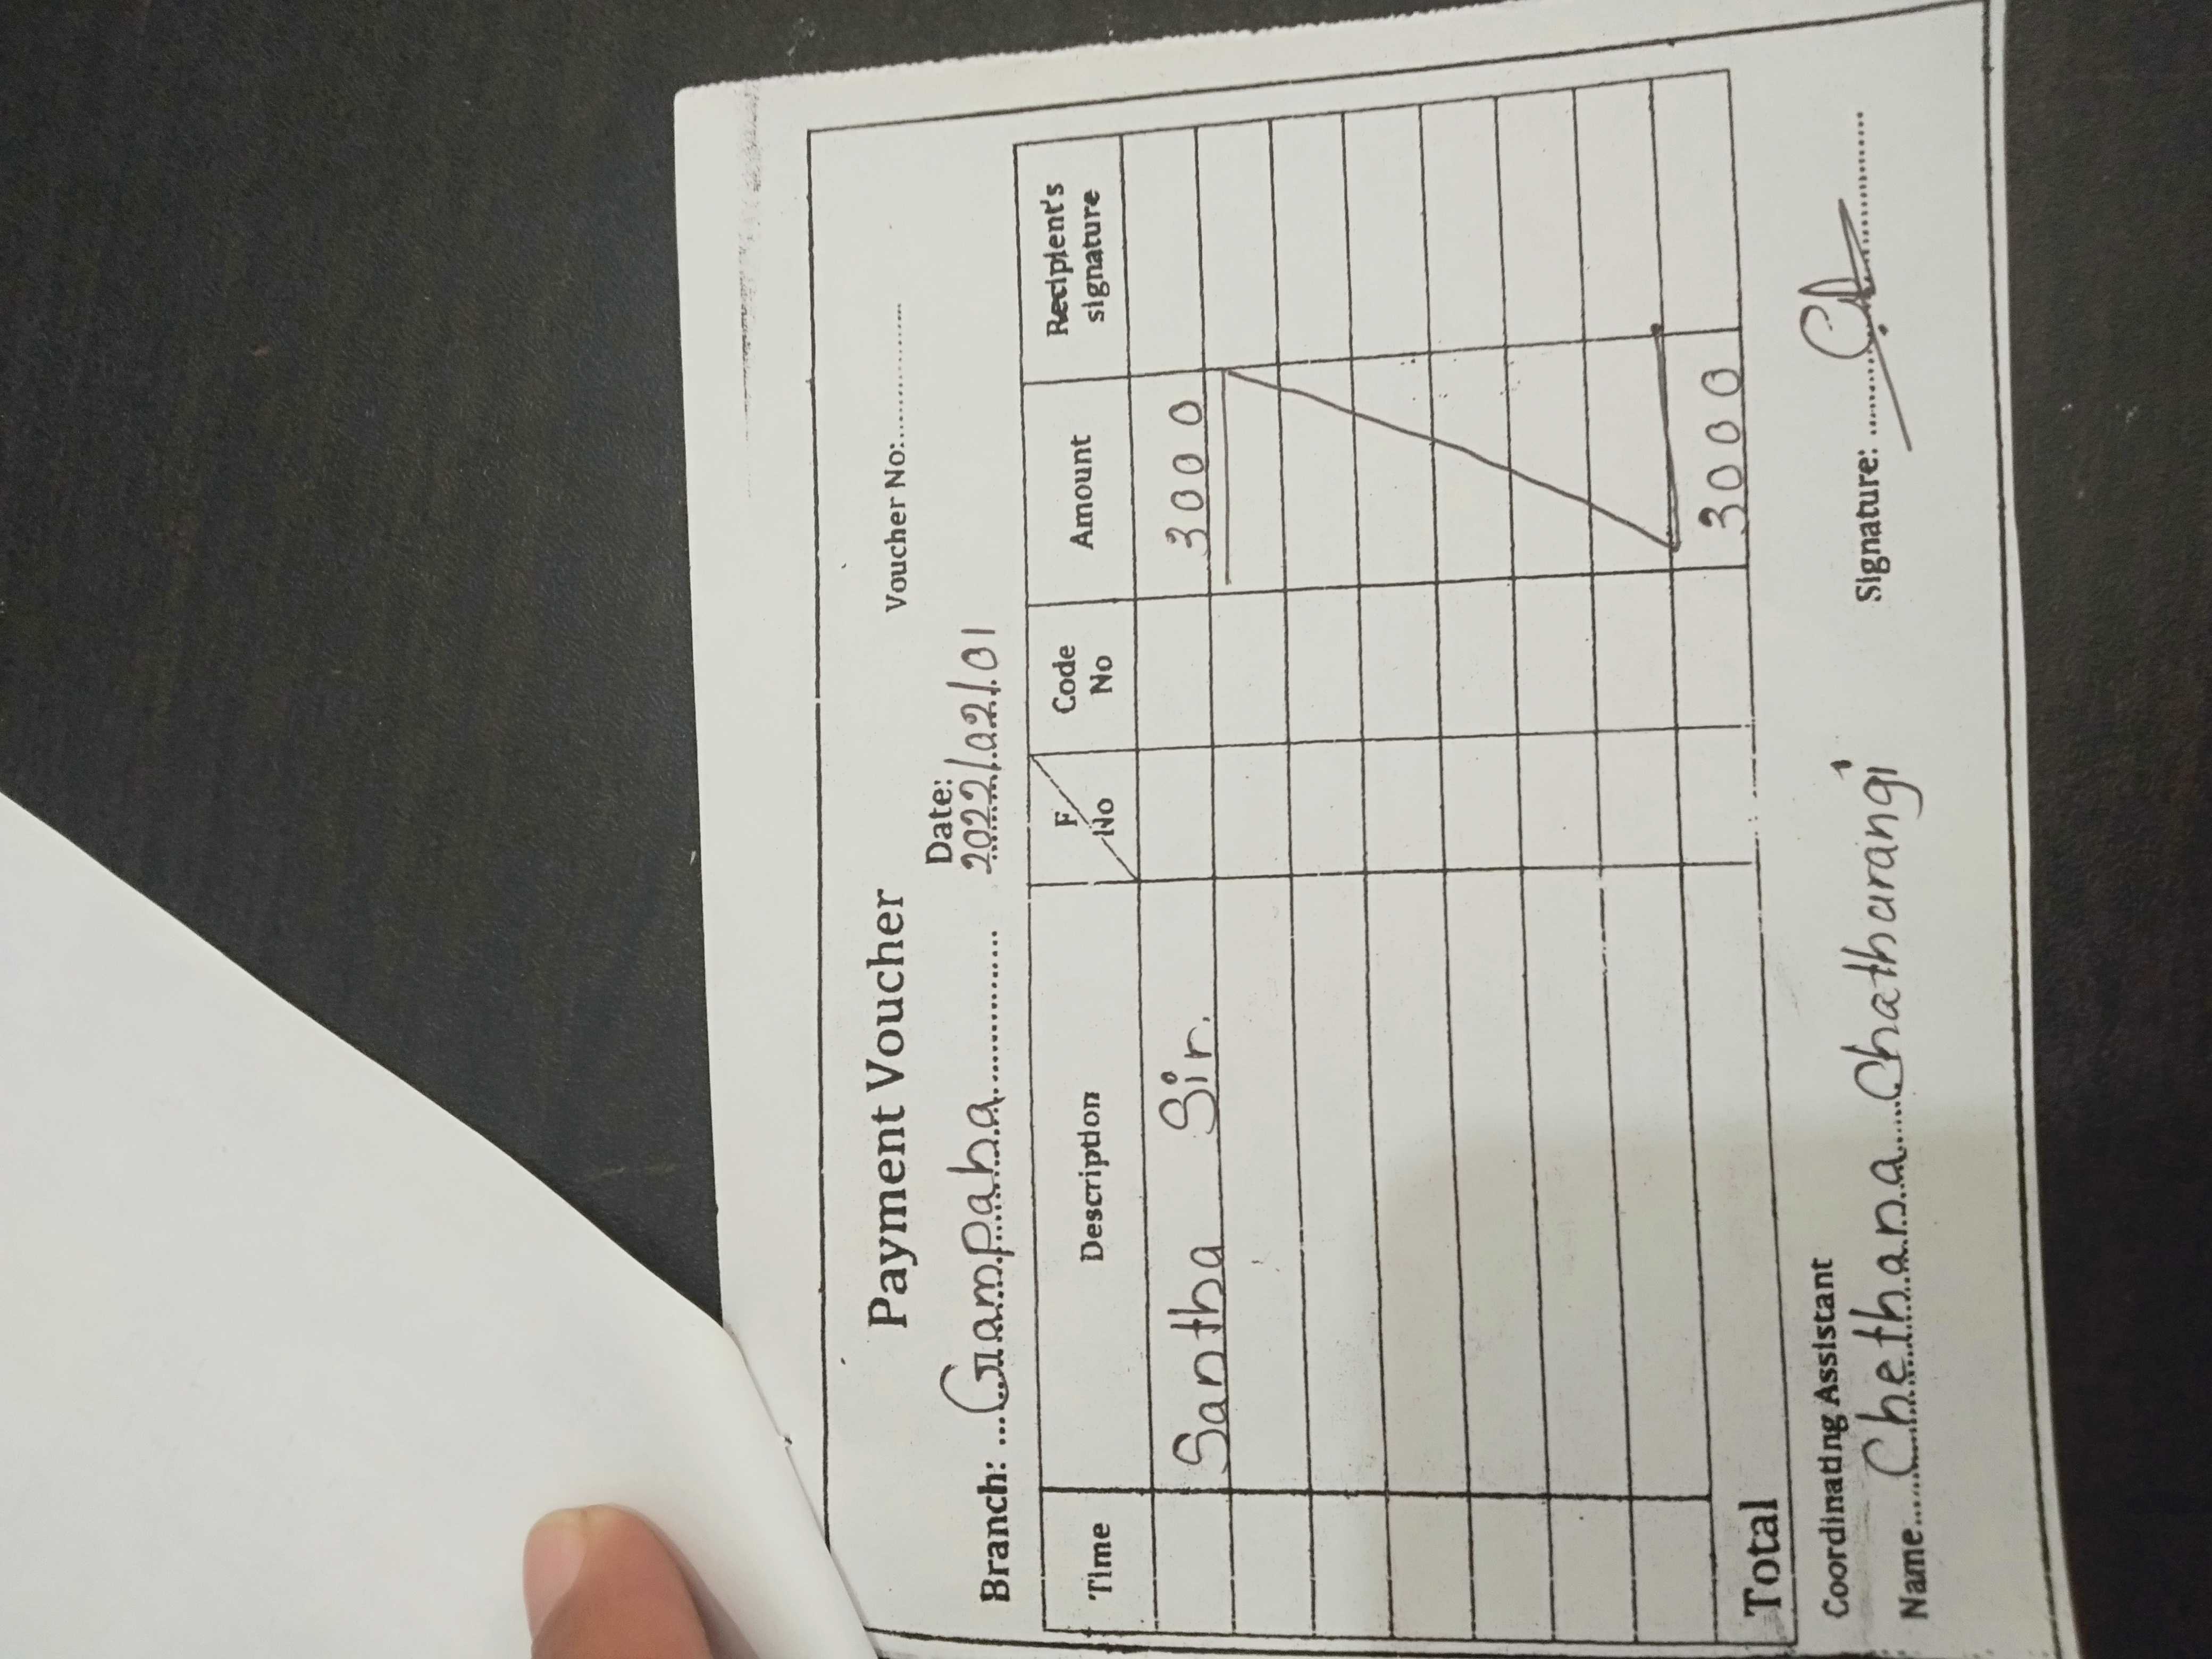 Payment Voucher
Voucher No:....................
Branch: ...Gampaha.................... Date: 2022/02/01
Time Description F/No Code No Amount Recipient's signature
Santha Sir. 3000
Total 3000
Coordinating Assistant
Name.....Chethana Chathurangi Signature: ....................